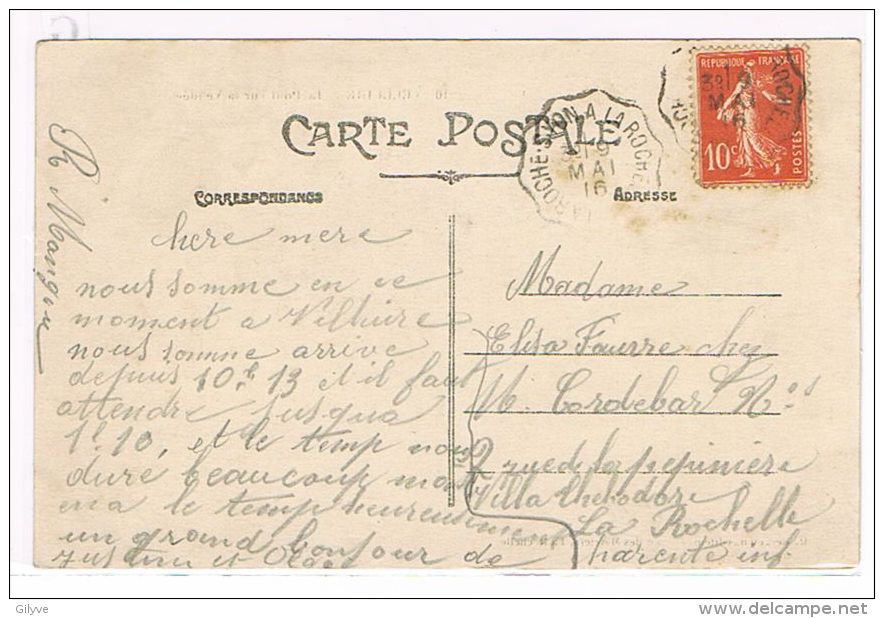 CARTE POSTALE
CORRESPONDANCE
ADRESSE
LA ROCHE-S-YON A LA ROCHE
9
MAI
16
REPUBLIQUE FRANÇAISE
10c
POSTES
R Mangin
chere mere
nous somme en ce
moment a Velluire
nous somme arrive
depuis 10h 13 et il faut
attendre jusqua
1h 10, et le temp nous
dure beaucoup mais
en a le temp heureusement
un grand bonjour de
Justin et
Madame
Elisa Faurre chez
M. Cordebar Nos
2 rue de la pepinière
Villa theodore
La Rochelle
Charente inf.
Gilyve
www.delcampe.net